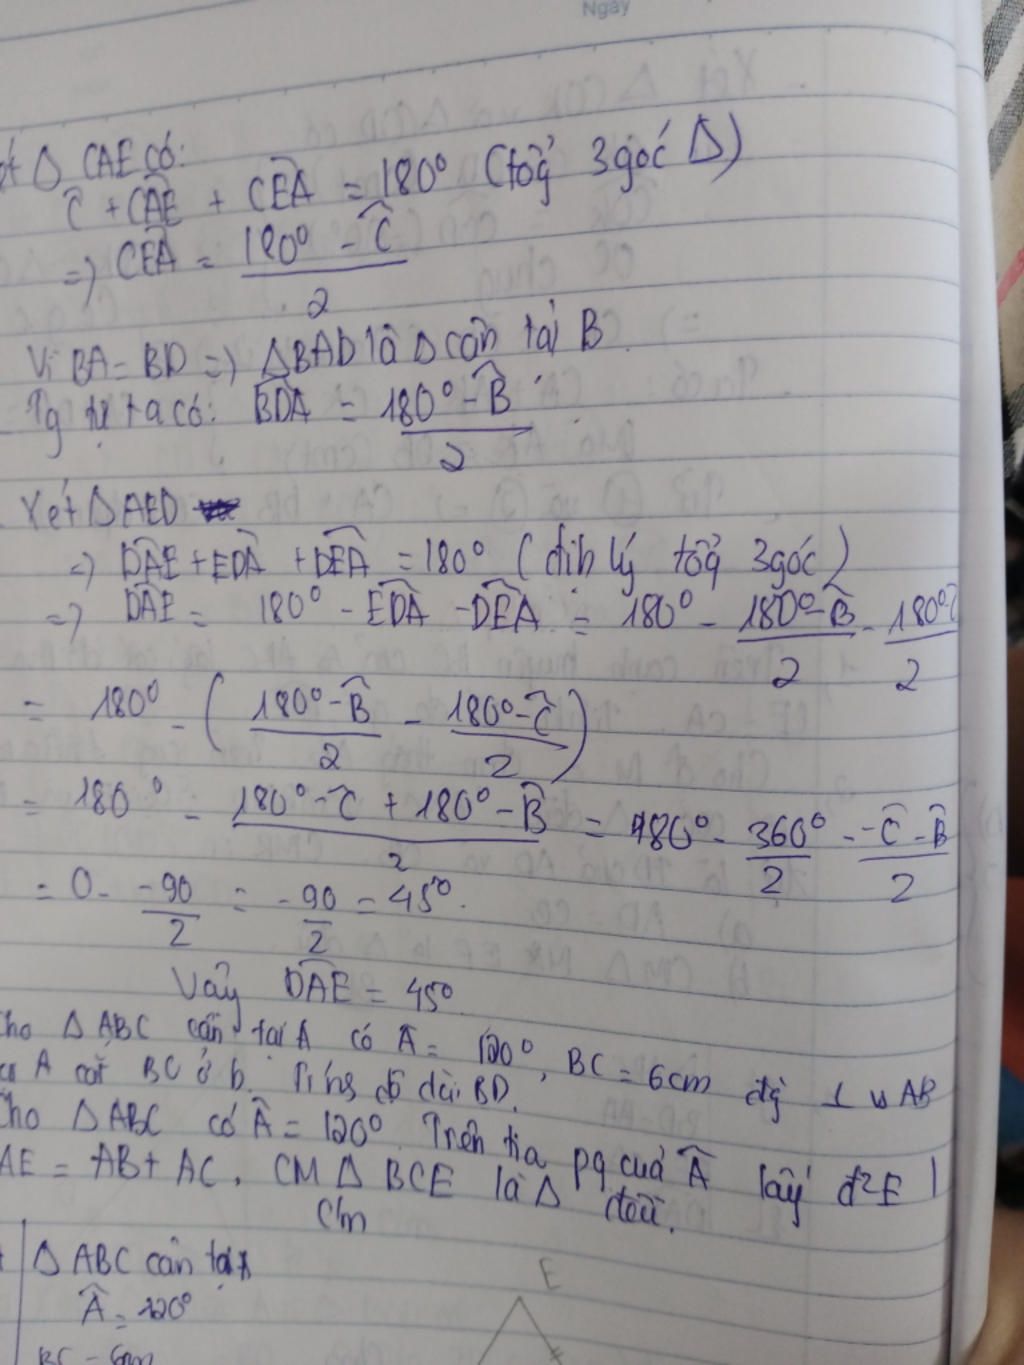 Ngày
Δ CAE có:
Ĉ + CÂE + CÊA = 180° (tổg 3 góc Δ)
=) CÊA = (180° - Ĉ)/2
Vì BA = BD =) ΔBAD là Δ cân tại B.
Tg tự ta có: BD̂A = (180° - B̂)/2
Xét ΔAED
=) DÂE + ED̂A + DÊA = 180° (địh lý tổg 3 góc)
=) DÂE = 180° - ED̂A - DÊA = 180° - (180° - B̂)/2 - (180° - Ĉ)/2
= 180° - ( (180° - B̂)/2 - (180° - Ĉ)/2 )
= 180° - (180° - Ĉ + 180° - B̂)/2 = 180° - 360°/2 - (-Ĉ - B̂)/2
= 0 - (-90)/2 = -90/2 = 45°.
Vậy DÂE = 45°
Cho Δ ABC cân tại A có Â = 120°, BC = 6cm đg ⊥ vs AB
A cắt BC ở D. Tính độ dài BD.
Cho Δ ABC có Â = 120°. Trên tia pg của Â lấy đ² E |
AE = AB + AC. CM Δ BCE là Δ đều.
C/m
Δ ABC cân tại A
Â = 120°
BC = 6cm
E